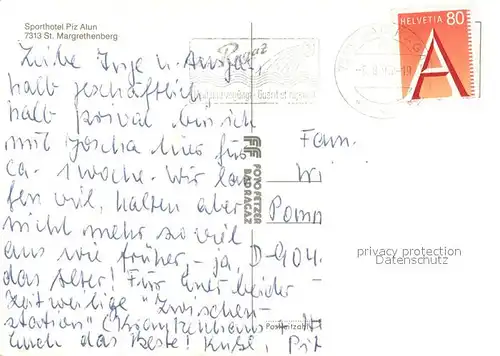 Sporthotel Piz Alun
7313 St. Margrethenberg
Liebe Inge u. Ansgar,
halb geschäftlich,
halb privat bin ich
mit Joscha hier für
ca. 1 Woche. Wir lau-
fen viel, halten aber
nicht mehr so viel
aus wie früher, - ja,
das Alter! Für Euer beider
zeitweilige "Zwischen-
station" (Krankenhaus
Euch das Beste! Kuß,
Bad Ragaz
HELVETIA 80
A
FF FOTO FETZER
BAD RAGAZ
Fam.
Wi
D-904
privacy protection
Datenschutz
Postleitzahl